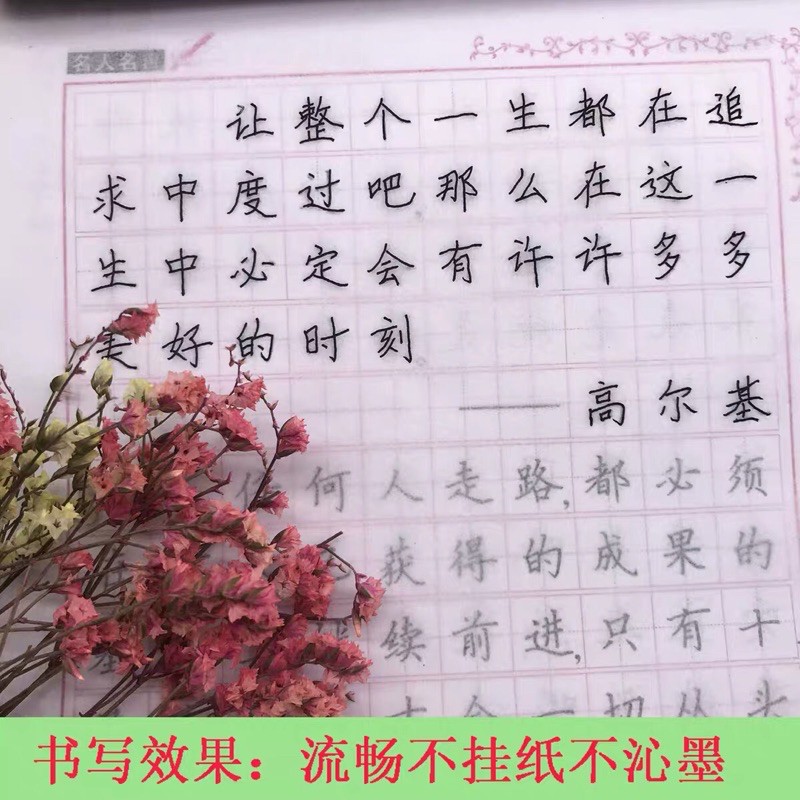 名人名
让整个一生都在追
求中度过吧那么在这一
生中必定会有许许多多
美好的时刻
——高尔基
何人走路,都必须
获得的成果的
续前进,只有十
一切从头
书写效果：流畅不挂纸不沁墨